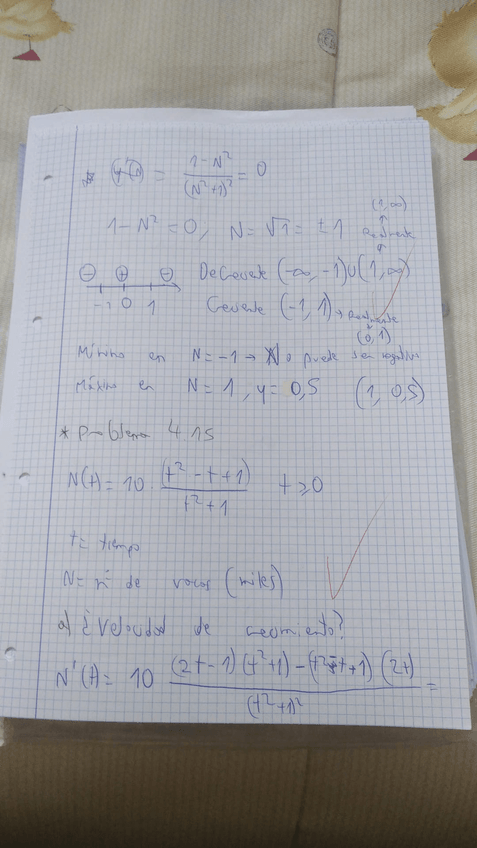 * y'(N) = \frac{1-N^2}{(N^2+1)^2} = 0
1-N^2 = 0, N = √1 = ±1
(1, ∞)
↑
Realmente
↑
⊖ ⊕ ⊖
-1 0 1
Decreciente (-∞, -1) ∪ (1, ∞)
Creciente (-1, 1) → Realmente
↓
(0, 1)
Mínimo en N = -1 → No puede ser negativo
Máximo en N = 1, y = 0,5 (1, 0,5)
* Problema 4.15
N(t) = 10 \frac{(t^2 - t + 1)}{t^2 + 1} t ≥ 0
t = tiempo
N = nº de (miles)
a) ¿Velocidad de crecimiento?
N'(t) = 10 \frac{(2t-1)(t^2+1) - (t^2-t+1)(2t)}{(t^2+1)^2} =